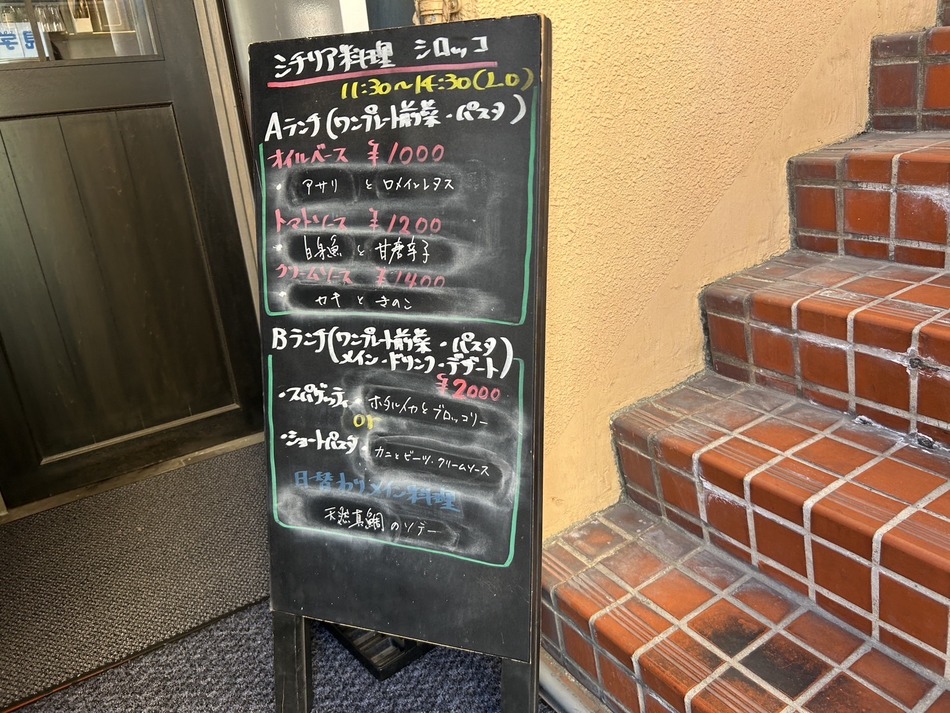 シチリア料理 シロッコ
11:30〜14:30(L.O)
Aランチ(ワンプレート前菜・パスタ)
オイルベース ¥1000
・アサリ とロメインレタス
トマトソース ¥1200
・白身魚 と 甘唐辛子
クリームソース ¥1400
・カキ と きのこ
Bランチ(ワンプレート前菜・パスタ
メイン・ドリンク・デザート)
¥2000
・スパゲッティ ホタルイカとブロッコリー
or
・ショートパスタ カニとビーツ・クリームソース
日替わりメイン料理
天然真鯛のソテー